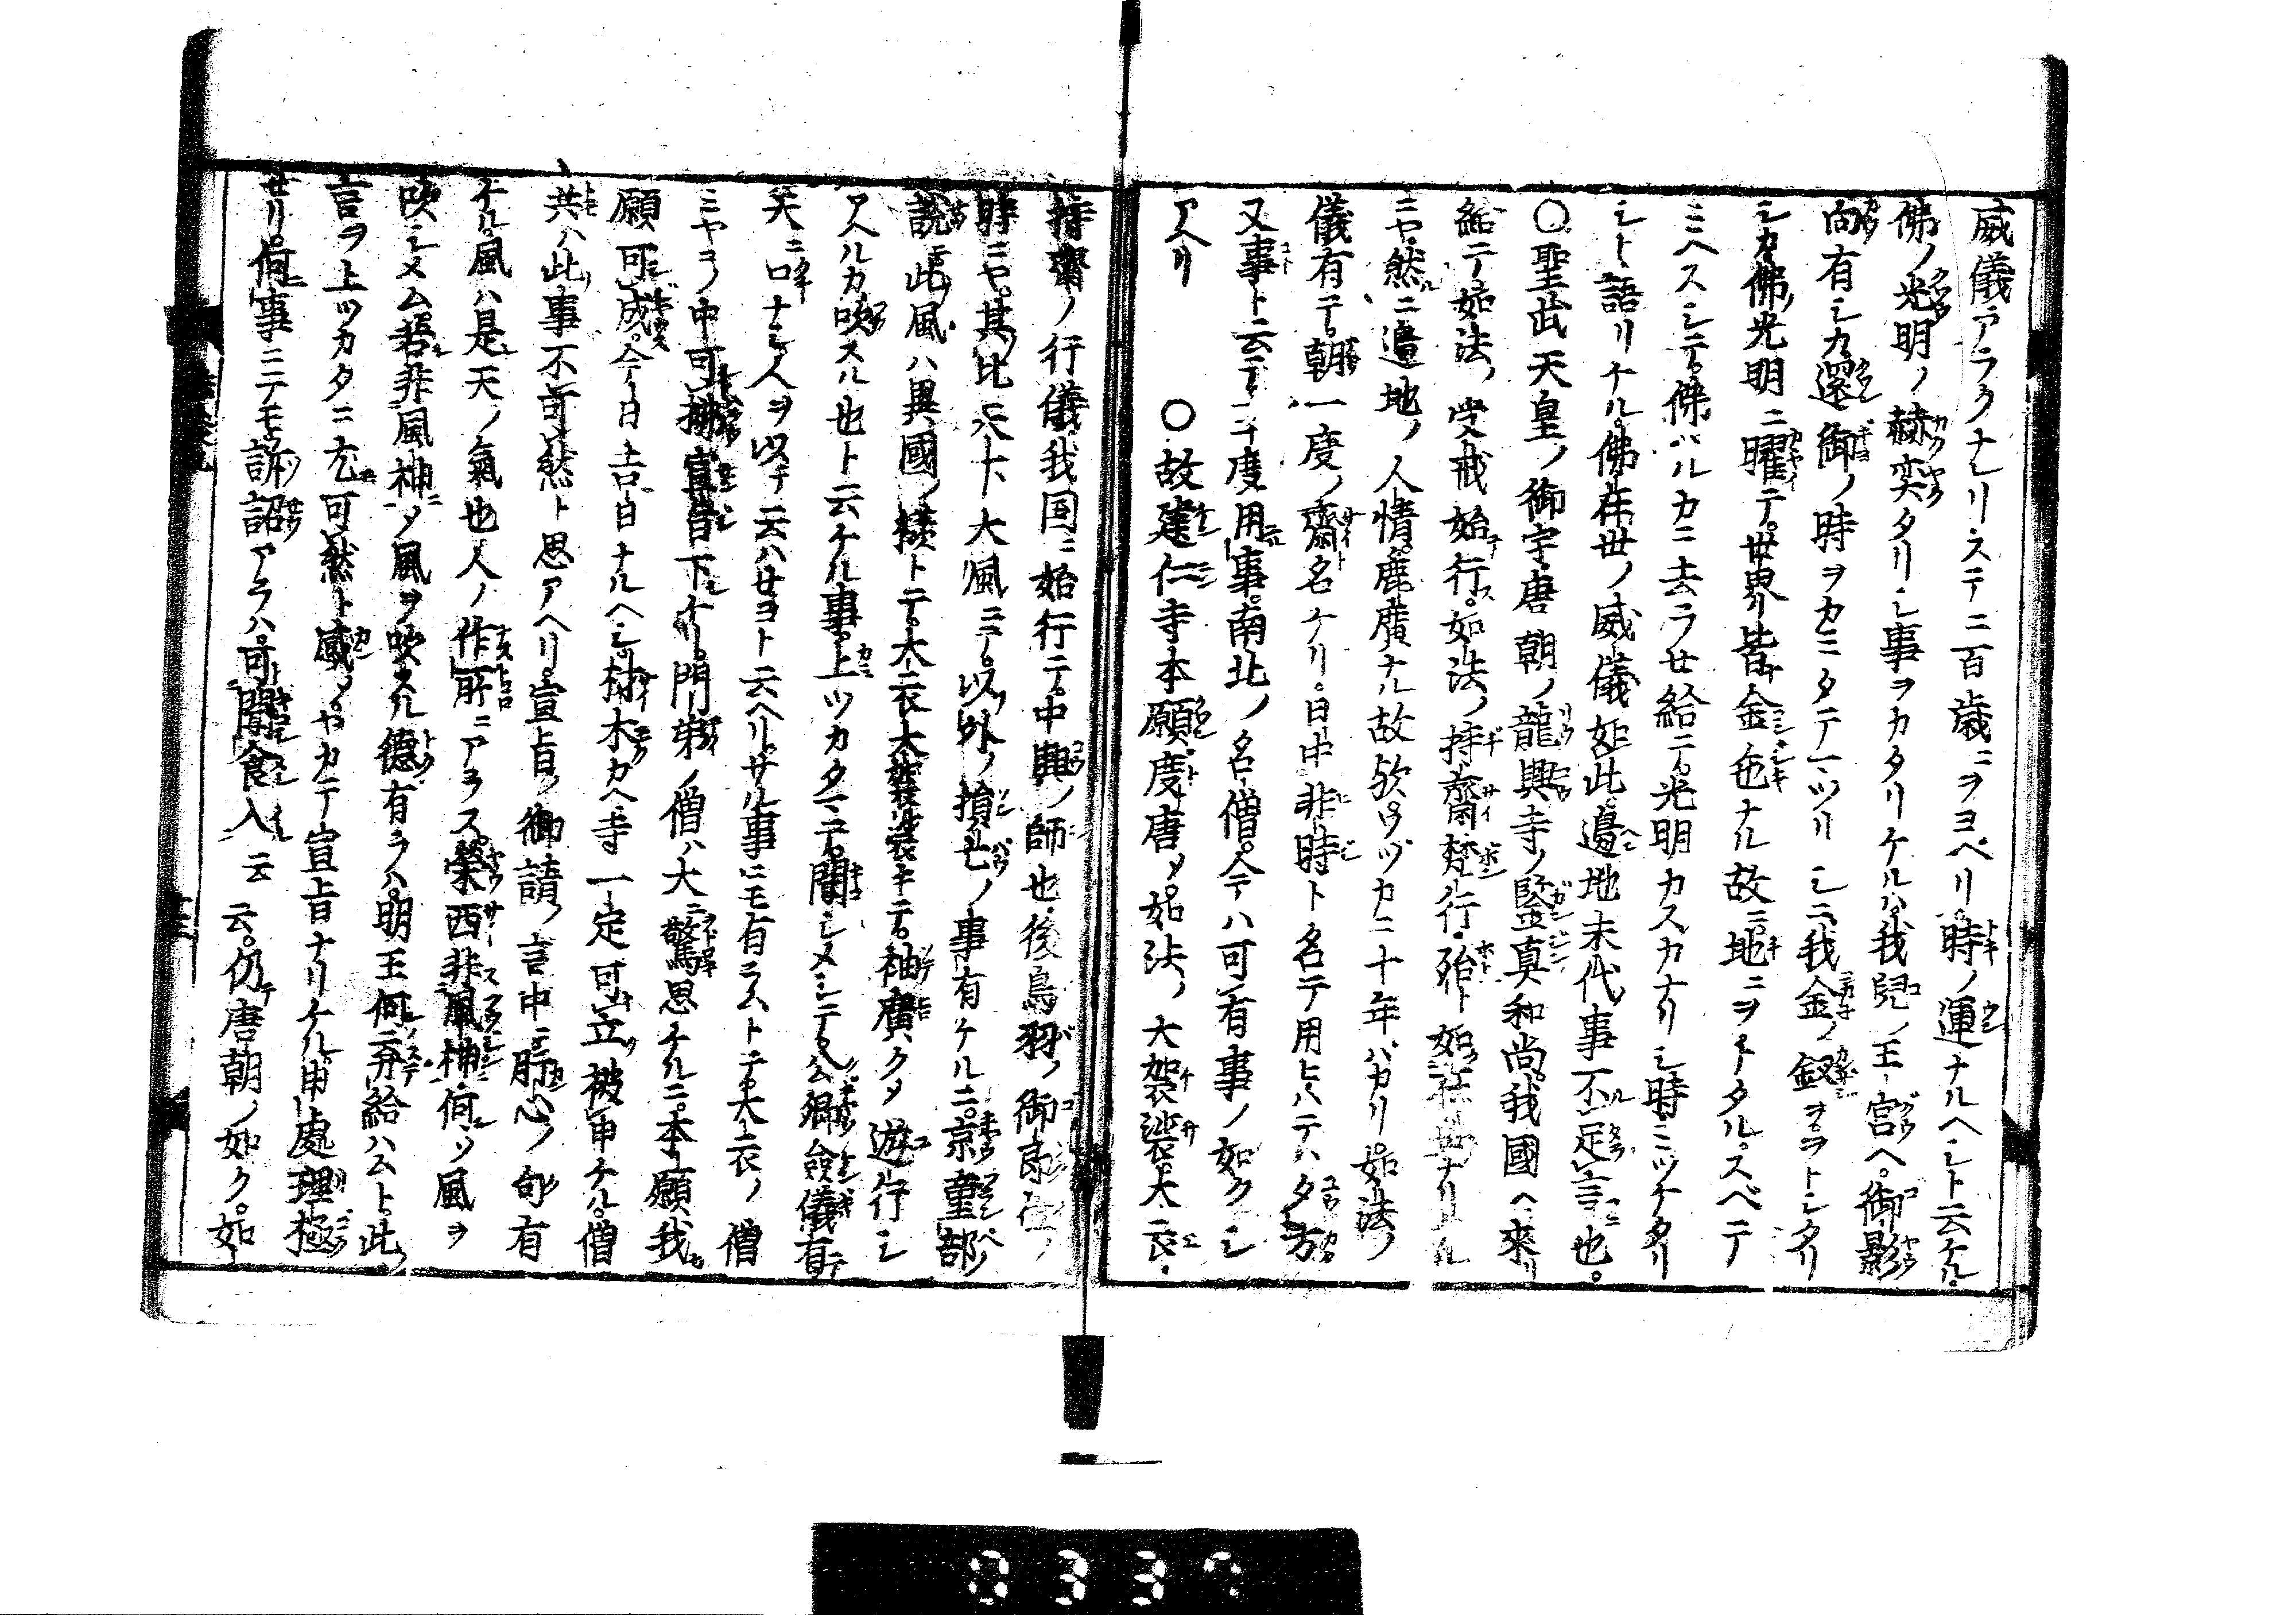 威儀アラクナレリ。ステニ百歳ニヲヨヘリ。時ノ運ナルヘシト云ケル。
佛ノ光明ノ赫奕タリシ事ヲカタリケルハ。我兒ノ王宮ヘ。御影
向有シカ。還御ノ時ヲカミタテマツリシニ。我金ノ釵ヲヲトシタリ
シカ。佛ノ光明ニ曜テ。世界皆金色ナル故ニ。地ニヲチタル。スベテ
ミヘスシテ。佛ハルカニ去ラせ給ニテ。光明カスカナリシ時ミツケタリ
シト語リナル。佛在世ノ威儀如此。邊地末代ノ事不足言也。
〇聖武天皇ノ御宇。唐朝ノ龍興寺ノ鑒真和尚。我國ヘ來リ
給ニテ。如法ノ受戒始行。如法ノ持齋梵行。殆ト如在世ナリケル
ニヤ。然ニ邊地ノ人情。麁廣ナル故歟。ワヅカニ十年バカリ如法ノ
儀有テ。朝一度ノ齋名ケリ。日中非時ト名テ用ヒ。ハテハタ方
又事ト云テ。二三度用事。南北ノ名僧。今ハ可有事ノ如クシ
アヘリ 〇故建仁寺本願。度唐メ。如法ノ大袈裟大衣。
持齋ノ行儀。我国ニ始行テ。中興ノ師也。後鳥羽ノ御
時ニヤ。其比天下大風ニテ。以外ノ損亡ノ事有ケルニ。京童部
説。此風ハ異國ノ様トテ。大衣大袈裟キテ。袖廣クメ遊行シ
アヘルカ吹スル也ト云ケル事。上ツカタマテ。聞シメシテ。公卿僉儀有テ
天ニロナシ。人ヲ以テ云ハせヨト云ヘリ。サル事ニモ有ラムトテ。大衣ノ僧
ミヤコノ中可擯宣旨下ケリ。門弟ノ僧ハ大ニ驚思ケルニ。本願我。
願可成。今日吉日ナルヘシ。材木カヘ。寺一定可立。被申ナル。僧
共ハ此事不可然ト思アヘリ。宣旨ノ御請ノ言中ニ。肝心ノ句有
ケル。風ハ是天ノ氣也。人ノ作所ニアラス。榮西非風神。何ソ風ヲ
吹シメム。若非風神メ風ヲ吹スル德有ラハ。明王何ニ弃給ハムト。此
言ヲ上ツカタニ尤可然ト感メ。ヤカテ宣旨ナリケル。申處理極
せリ。何事ニテモ訴詔アラハ。可聞食入云云。仍唐朝ノ如ク。如